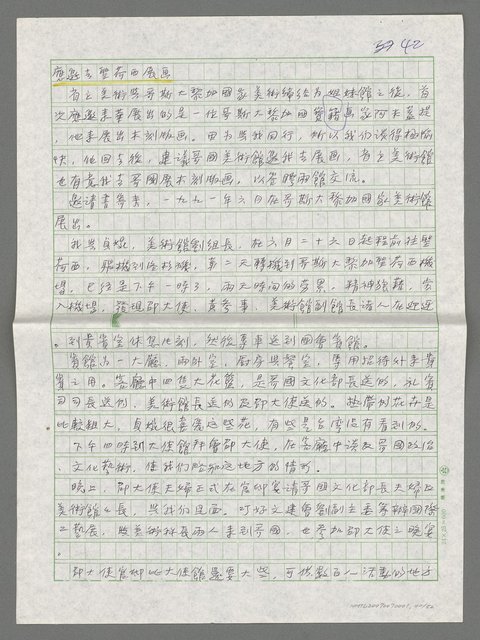 37 42
應邀去聖荷西展画
省立美術與哥斯大黎加國家美術締結為姐妹館之後，首
次應邀來華展出的是一位哥斯大黎加國寶級畫家阿米蓋提
，他來展出木刻版画。因為與我同行，所以我们談得極愉
快，他回去後，建議哥國美術館邀我去展画，省立美術館
也有意我去哥國展木刻版画，以答聘兩館交流。
邀請書寄來，一九九一年六月在哥斯大黎加國家美術館
展出。
我與貞婉，美術館劉組長，在六月二十六日起程前往聖
荷西，飛機到洛杉磯，第二天轉機到哥斯大黎加聖荷西機
場，已經是下午一時了，兩天時間的勞累，精神疲藉，當
入機場，發現邵大使、黃參事、美術館副館長諸人在迎迓
。到貴賓室休息片刻，然後專車送到國賓賓館。
賓館為一大廳，兩卧室，厨房與警室，專用招待外來貴
賓之用。客廳中四隻大花籃，是哥國文化部長送的，礼賓
司司長送的，美術館長送的及邵大使送的。熱帶的花卉是
比較粗大，貞婉很喜愛這些花，有些是台灣沒有看到的。
下午四時到大使館拜會邵大使，在客廳中談及哥國政治
、文化藝術，使我们略知這地方的情形。
晚上，邵大使夫婦正式在官邸宴請哥國文化部長夫婦及
美術館館長，與我们見面。叮好文建會劉副主委籌辦國際
工藝展，與美術科長兩人來到哥國，也參加邵大使之晚宴
。
邵大使官邸比大使館還要大些，可供數百人活動的地方